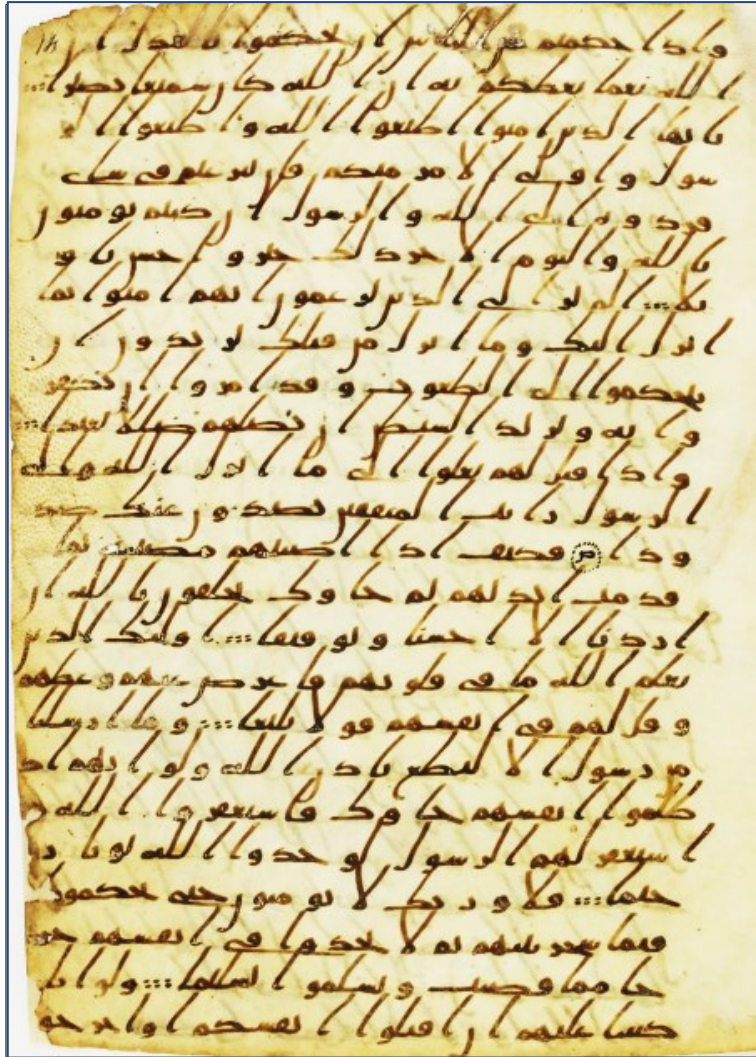 واذا حكمتم بين الناس ان تحكموا بالعدل ان
الله نعما يعظكم به ان الله كان سميعا بصيرا
يايها الذين امنوا اطيعوا الله واطيعوا الر
سول واولى الامر منكم فان تنزعتم فى شى
فردوه الى الله والرسول ان كنتم تومنون
بالله واليوم الاخر ذلك خير واحسن تاو
يلا الم تر الى الذين يزعمون انهم امنوا بما
انزل اليك وما انزل من قبلك يريدون ان
يتحكموا الى الطغوت وقد امروا ان يكفر
وا به ويريد الشيطن ان يضلهم ضللا بعيدا
واذا قيل لهم تعلوا الى ما انزل الله والى
الرسول رايت المنفقين يصدون عنك صد
ودا فكيف اذا اصبتهم مصيبة بما
قدمت ايديهم ثم جاوك يحلفون بالله ان
اردنا الا احسنا وتوفيقا اوليك الذين
يعلم الله ما فى قلوبهم فاعرض عنهم وعظهم
وقل لهم فى انفسهم قولا بليغا وما ارسلنا
من رسول الا ليطع باذن الله ولو انهم اذ
ظلموا انفسهم جاوك فاستغفروا الله و
استغفر لهم الرسول لوجدوا الله توابا ر
حيما فلا وربك لا يومنون حتى يحكموك
فيما شجر بينهم ثم لا يجدوا فى انفسهم حر
جا مما قضيت ويسلموا تسليما ولو انا
كتبنا عليهم ان اقتلوا انفسكم او اخرجو